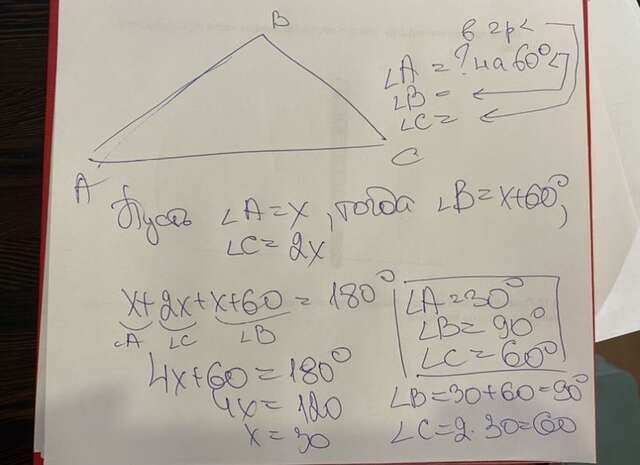 B
в 2р <
∠A = ? на 60° <
∠B =
∠C =
A
C
Пусть ∠A = x, тогда ∠B = x+60°,
∠C = 2x
x + 2x + x+60 = 180°
∠A ∠C ∠B
4x+60 = 180°
4x = 120
x = 30
∠A = 30°
∠B = 90°
∠C = 60°
∠B = 30+60 = 90°
∠C = 2·30 = 60